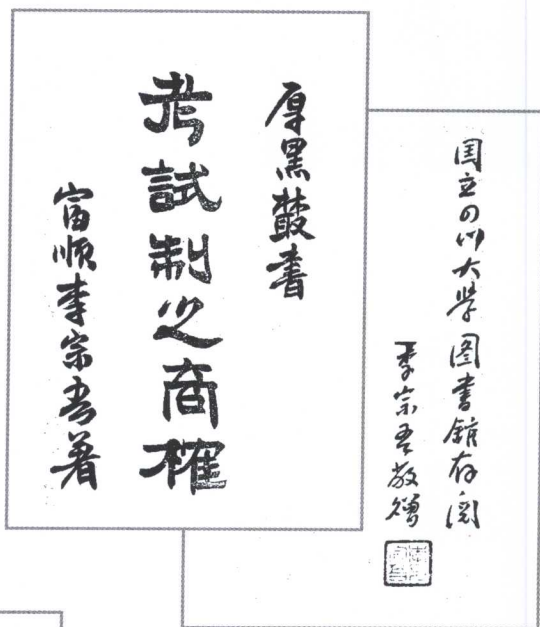 厚黑叢書
考試制之商榷
富順李宗吾著
国立四川大學图書館存阅
李宗吾敬贈